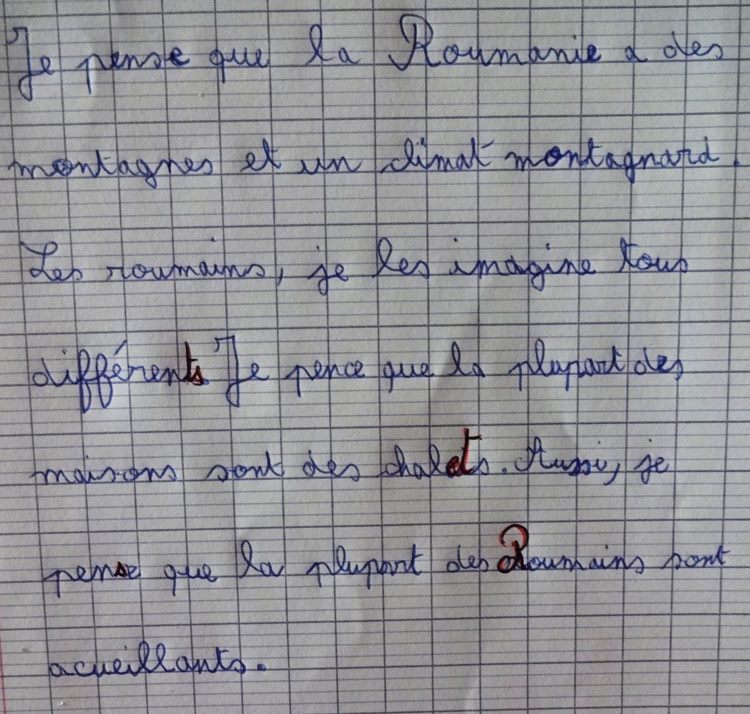 Je pense que la Roumanie a des
montagnes et un climat montagnard.
Les roumains, je les imagine tous
différents Je pence que la plupart des
maisons sont des chalets. Aussi, je
pense que la plupart des Roumains sont
acueillants.